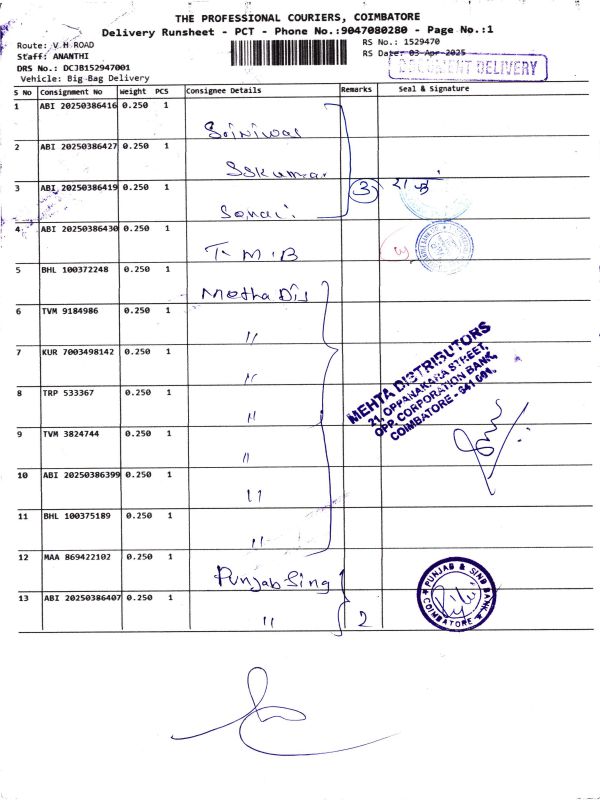 THE PROFESSIONAL COURIERS, COIMBATORE
Delivery Runsheet - PCT - Phone No.:9047080280 - Page No.:1
Route: V H ROAD
RS No.: 1529470
Staff: ANANTHI
RS Date: 03-Apr-2025
DRS No.: DCJB152947001
DOCUMENT DELIVERY
Vehicle: Big Bag Delivery
S No Consignment No Weight PCS Consignee Details Remarks Seal & Signature
1 ABI 20250386416 0.250 1
Srinivas
2 ABI 20250386427 0.250 1
SSKumar
3 ABI 20250386419 0.250 1 3
Sonai
4 ABI 20250386430 0.250 1
T.M.B
5 BHL 100372248 0.250 1
Metha Dis
6 TVM 9184986 0.250 1
"
7 KUR 7003498142 0.250 1
"
8 TRP 533367 0.250 1
"
9 TVM 3824744 0.250 1
"
10 ABI 20250386399 0.250 1
"
11 BHL 100375189 0.250 1
"
MEHTA DISTRIBUTORS
21, OPPANAKARA STREET,
OPP. CORPORATION BANK,
COIMBATORE - 641 001.
12 MAA 869422102 0.250 1
Punjab Sing
13 ABI 20250386407 0.250 1
" 2
PUNJAB & SIND BANK
COIMBATORE